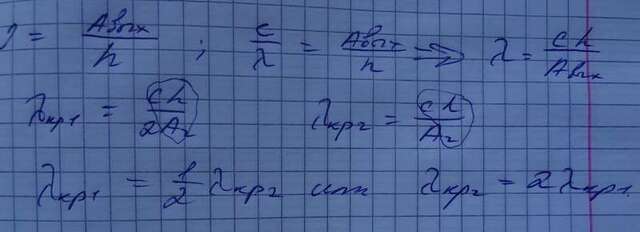 ν = Aвых/h ; c/λ = Aвых/h ⇒ λ = ch/Aвых
λкр1 = ch/2A2 λкр2 = ch/A2
λкр1 = 1/2 λкр2 или λкр2 = 2λкр1